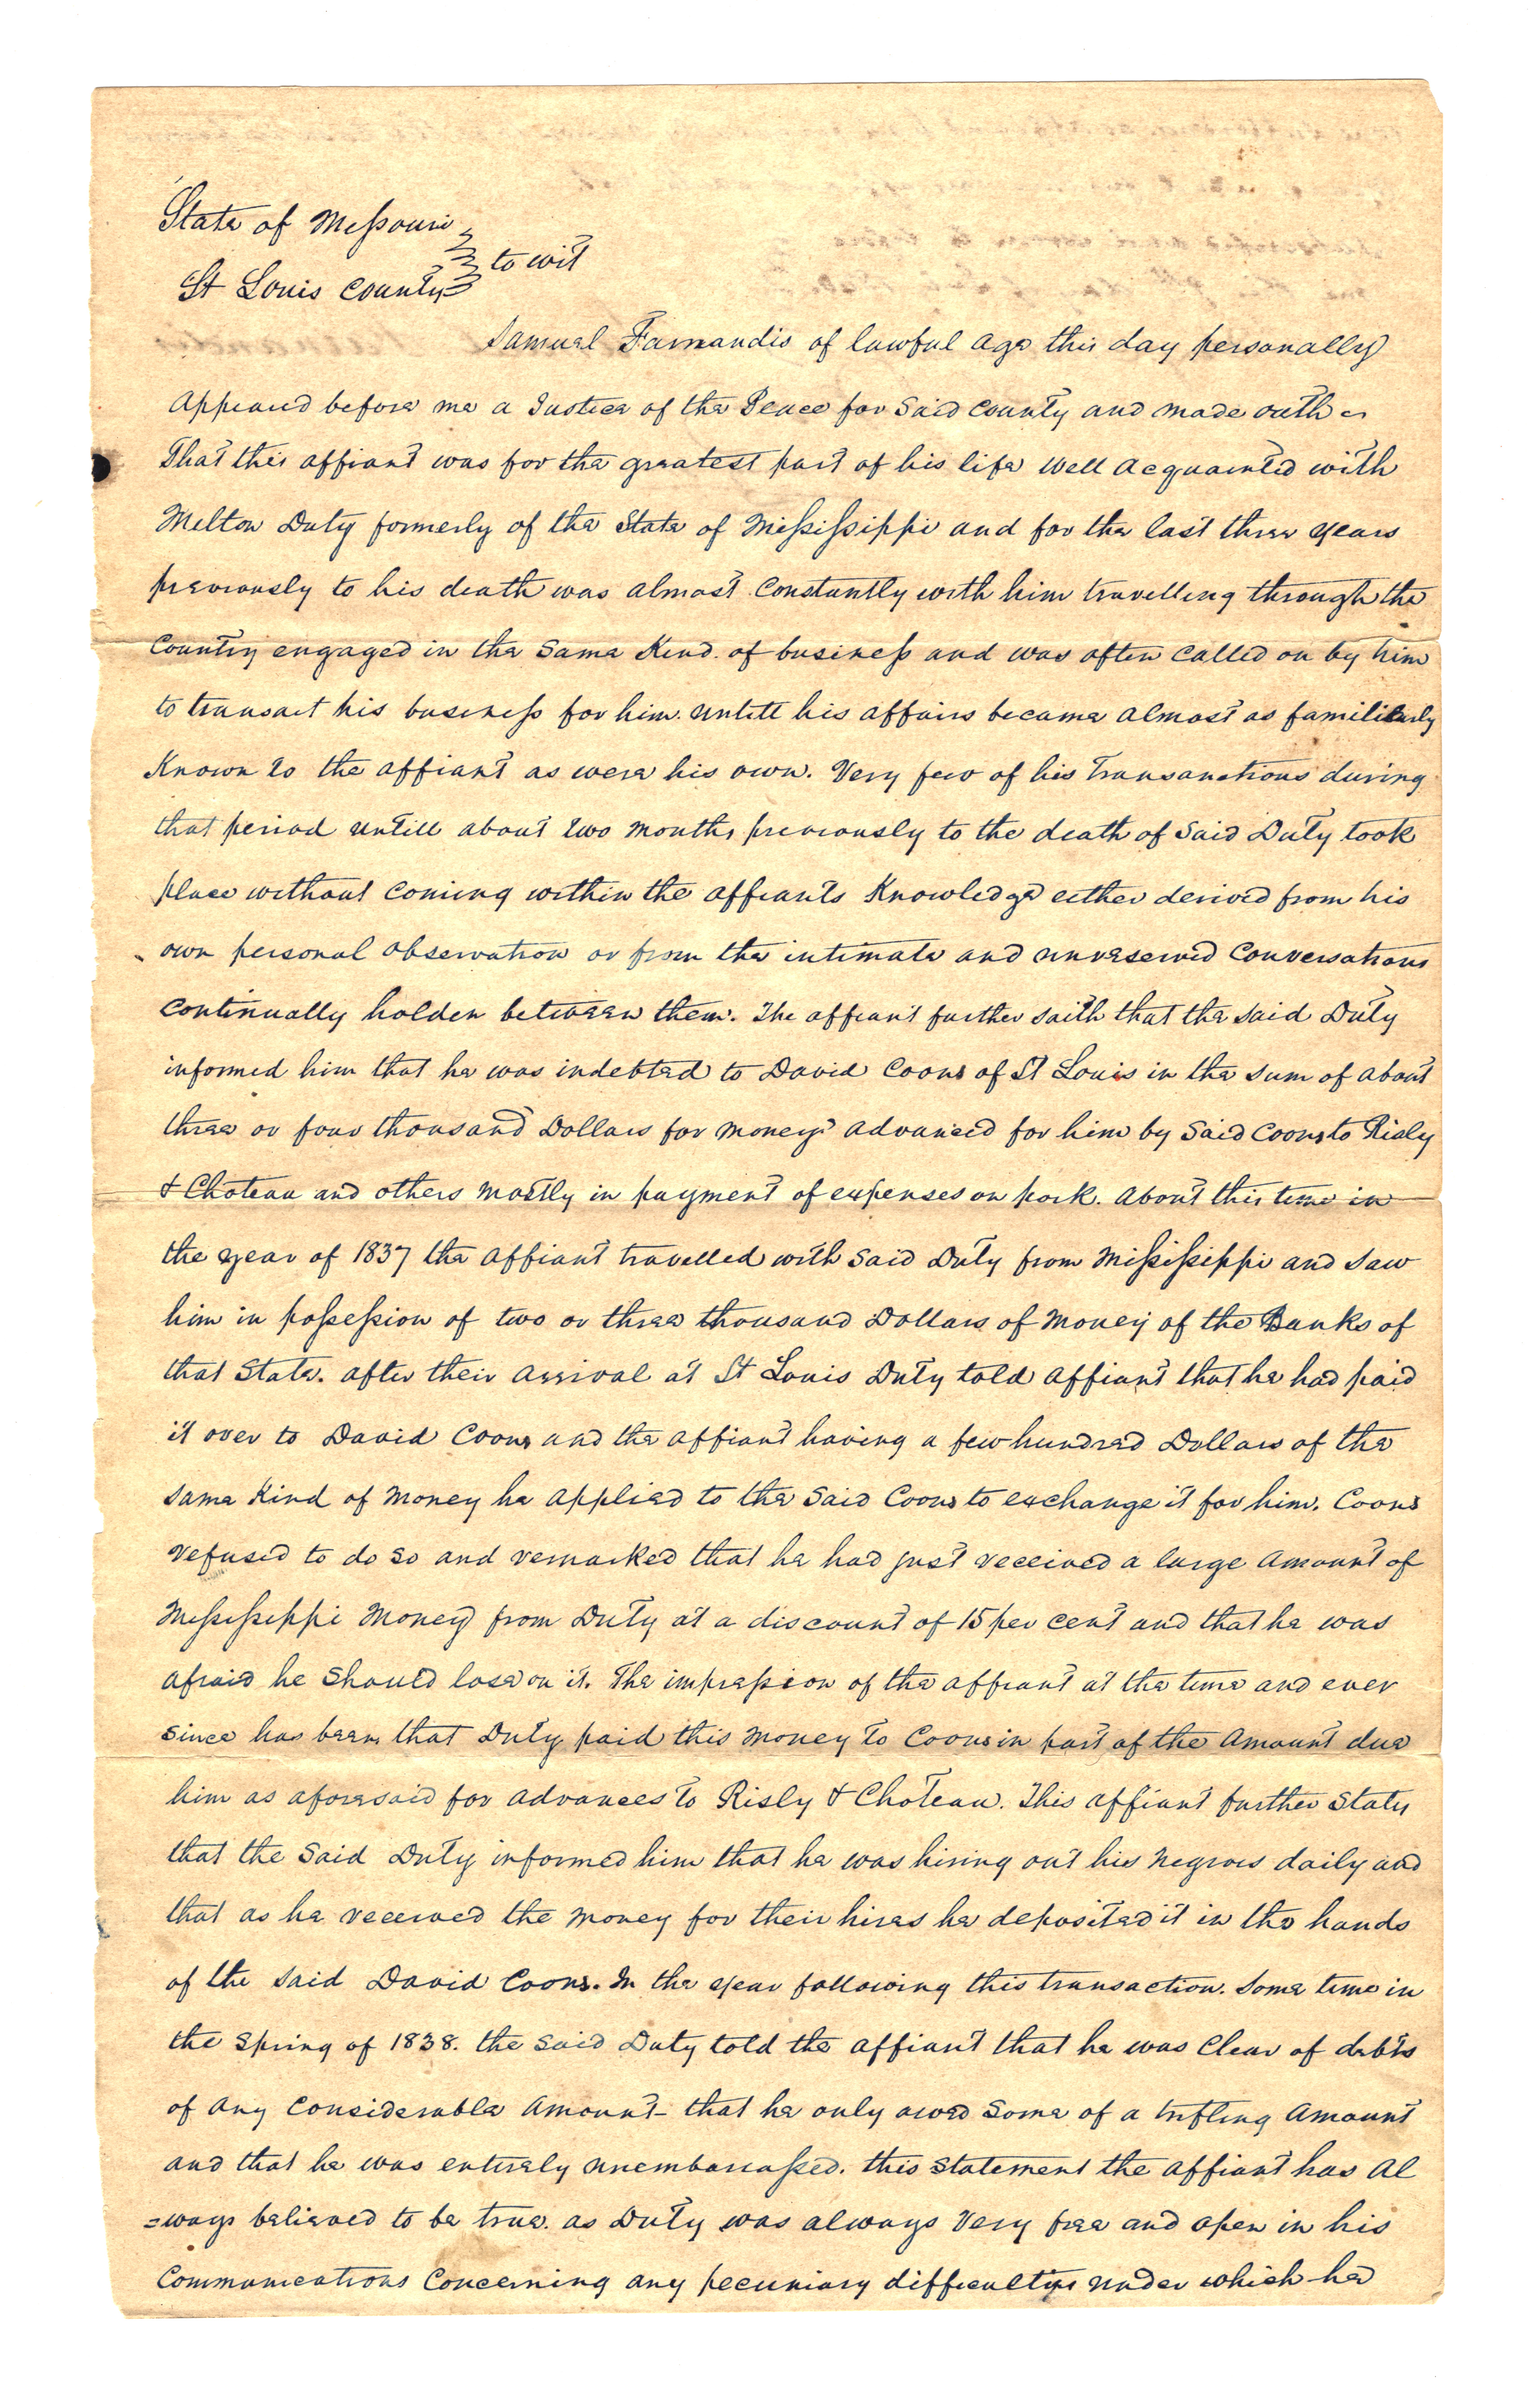 State of Missouri
to wit
St Louis County
Samuel Farnandis of lawful age this day personally
appeared before me a Justice of the Peace for said County and made oath
That this affiant was for the greatest part of his life well acquainted with
Milton Duty formerly of the State of Mississippi and for the last three years
previously to his death was almost constantly with him travelling through the
Country engaged in the same kind of business and was often called on by him
to transact his business for him. untill his affairs became almost as familiarly
known to the affiant as were his own. Very few of his transanctions during
that period untill about two months previously to the death of said Duty took
place without coming within the affiants knowledge either derived from his
own personal observation or from the intimate and unreserved conversations
continually holden between them. The affiant further saith that the said Duty
informed him that he was indebted to David Coons of St Louis in the sum of about
three or four thousand Dollars for moneys advanced for him by said Coons to Risly
& Choteau and others mostly in payment of expenses on pork. About this time in
the year of 1837 the affiant travelled with said Duty from Mississippi and saw
him in possession of two or three thousand Dollars of money of the Banks of
that State. after their arrival at St Louis Duty told affiant that he had paid
it over to David Coons and the affiant having a few hundred Dollars of the
same kind of money he applied to the said Coons to exchange it for him. Coons
refused to do so and remarked that he had just received a large amount of
Mississippi money from Duty at a discount of 15 per cent and that he was
afraid he should lose on it. The impression of the affiant at the time and ever
since has been that Duty paid this money to Coons in part of the amount due
him as aforesaid for advances to Risly & Choteau. This affiant further states
that the said Duty informed him that he was hiring out his negroes daily and
that as he received the money for their hires he deposited it in the hands
of the said David Coons. In the year following this transaction. some time in
the spring of 1838. the said Duty told the affiant that he was clear of debts
of any considerable amount - that he only owed some of a trifling amount
and that he was entirely unembarrassed. this statement the affiant has al
=ways believed to be true. as Duty was always very free and open in his
communications concerning any pecuniary difficulties under which he